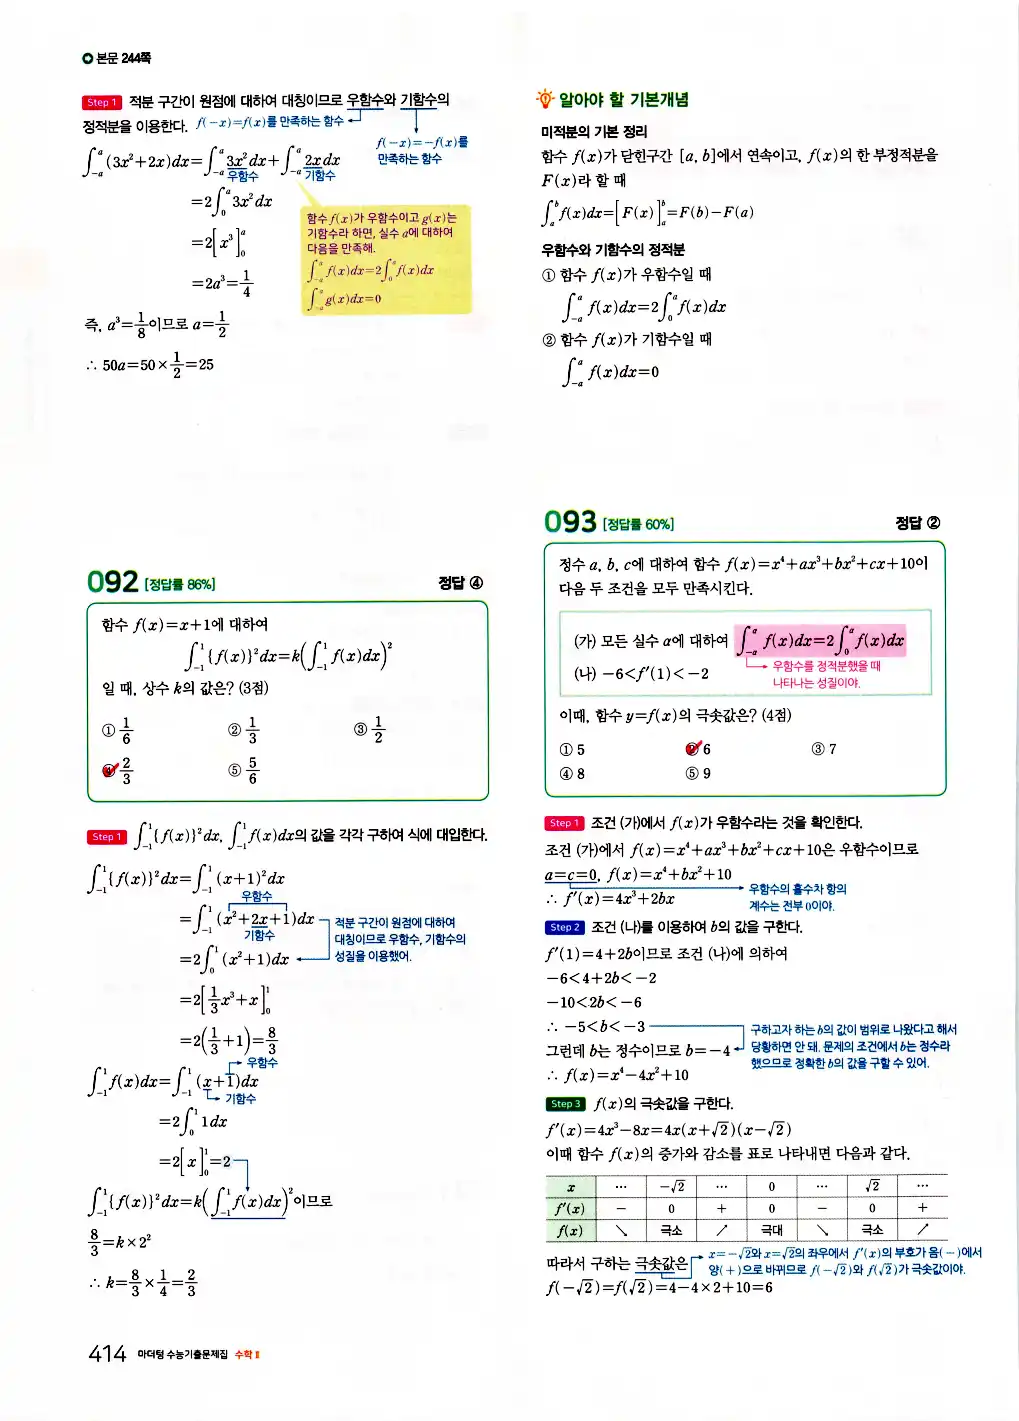 본문 244쪽
Step 1 적분 구간이 원점에 대하여 대칭이므로 우함수와 기함수의
정적분을 이용한다. f(−x)=f(x)를 만족하는 함수
f(−x)=−f(x)를
만족하는 함수
∫_{-a}^{a}(3x²+2x)dx=∫_{-a}^{a}3x²dx+∫_{-a}^{a}2xdx
우함수 기함수
=2∫_{0}^{a}3x²dx
=2[x³]_{0}^{a}
=2a³=1/4
함수 f(x)가 우함수이고 g(x)는
기함수라 하면, 실수 a에 대하여
다음을 만족해.
∫_{-a}^{a}f(x)dx=2∫_{0}^{a}f(x)dx
∫_{-a}^{a}g(x)dx=0
즉, a³=1/8이므로 a=1/2
∴ 50a=50×1/2=25
알아야 할 기본개념
미적분의 기본 정리
함수 f(x)가 닫힌구간 [a, b]에서 연속이고, f(x)의 한 부정적분을
F(x)라 할 때
∫_{a}^{b}f(x)dx=[F(x)]_{a}^{b}=F(b)−F(a)
우함수와 기함수의 정적분
① 함수 f(x)가 우함수일 때
∫_{-a}^{a}f(x)dx=2∫_{0}^{a}f(x)dx
② 함수 f(x)가 기함수일 때
∫_{-a}^{a}f(x)dx=0
092 [정답률 86%] 정답 ④
함수 f(x)=x+1에 대하여
∫_{-1}^{1}{f(x)}²dx=k(∫_{-1}^{1}f(x)dx)²
일 때, 상수 k의 값은? (3점)
① 1/6 ② 1/3 ③ 1/2
④ 2/3 ⑤ 5/6
Step 1 ∫_{-1}^{1}{f(x)}²dx, ∫_{-1}^{1}f(x)dx의 값을 각각 구하여 식에 대입한다.
∫_{-1}^{1}{f(x)}²dx=∫_{-1}^{1}(x+1)²dx
우함수
=∫_{-1}^{1}(x²+2x+1)dx
기함수
적분 구간이 원점에 대하여
대칭이므로 우함수, 기함수의
성질을 이용했어.
=2∫_{0}^{1}(x²+1)dx
=2[1/3x³+x]_{0}^{1}
=2(1/3+1)=8/3
우함수
∫_{-1}^{1}f(x)dx=∫_{-1}^{1}(x+1)dx
기함수
=2∫_{0}^{1}1dx
=2[x]_{0}^{1}=2
∫_{-1}^{1}{f(x)}²dx=k(∫_{-1}^{1}f(x)dx)²이므로
8/3=k×2²
∴ k=8/3×1/4=2/3
093 [정답률 60%] 정답 ②
정수 a, b, c에 대하여 함수 f(x)=x⁴+ax³+bx²+cx+10이
다음 두 조건을 모두 만족시킨다.
(가) 모든 실수 a에 대하여 ∫_{-a}^{a}f(x)dx=2∫_{0}^{a}f(x)dx
우함수를 정적분했을 때
나타나는 성질이야.
(나) −6<f′(1)<−2
이때, 함수 y=f(x)의 극솟값은? (4점)
① 5 ② 6 ③ 7
④ 8 ⑤ 9
Step 1 조건 (가)에서 f(x)가 우함수라는 것을 확인한다.
조건 (가)에서 f(x)=x⁴+ax³+bx²+cx+10은 우함수이므로
a=c=0, f(x)=x⁴+bx²+10
우함수의 홀수차 항의
계수는 전부 0이야.
∴ f′(x)=4x³+2bx
Step 2 조건 (나)를 이용하여 b의 값을 구한다.
f′(1)=4+2b이므로 조건 (나)에 의하여
−6<4+2b<−2
−10<2b<−6
∴ −5<b<−3
그런데 b는 정수이므로 b=−4
구하고자 하는 b의 값이 범위로 나왔다고 해서
당황하면 안 돼. 문제의 조건에서 b는 정수라
했으므로 정확한 b의 값을 구할 수 있어.
∴ f(x)=x⁴−4x²+10
Step 3 f(x)의 극솟값을 구한다.
f′(x)=4x³−8x=4x(x+√2)(x−√2)
이때 함수 f(x)의 증가와 감소를 표로 나타내면 다음과 같다.
x ⋯ −√2 ⋯ 0 ⋯ √2 ⋯
f′(x) − 0 + 0 − 0 +
f(x) ↘ 극소 ↗ 극대 ↘ 극소 ↗
따라서 구하는 극솟값은
x=−√2와 x=√2의 좌우에서 f′(x)의 부호가 음(−)에서
양(+)으로 바뀌므로 f(−√2)와 f(√2)가 극솟값이야.
f(−√2)=f(√2)=4−4×2+10=6
414 마더텅 수능기출문제집 수학 Ⅱ